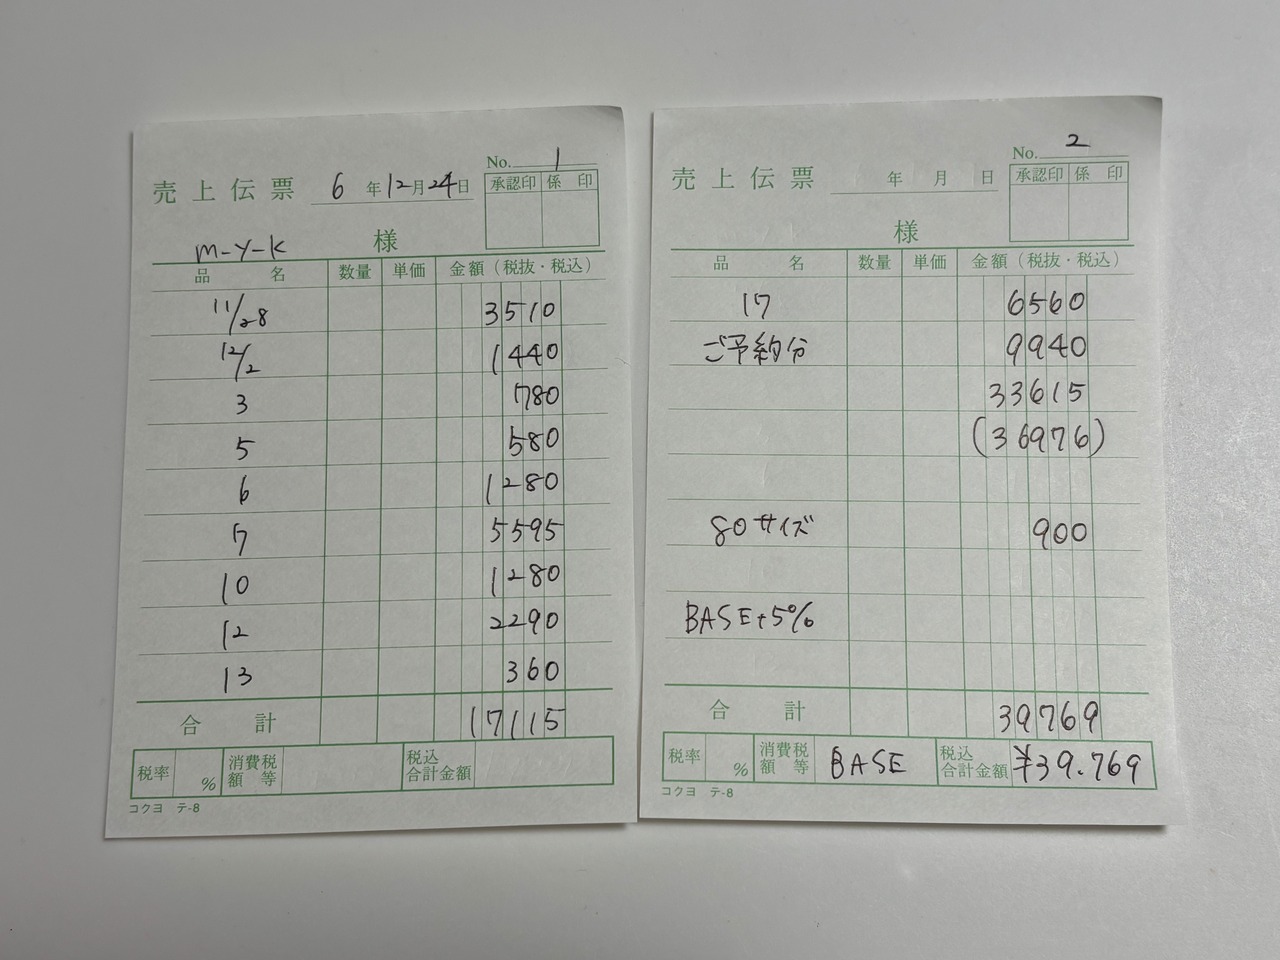 No. 1
売上伝票 6年12月24日
承認印 係印
m-y-k 様
品名 数量 単価 金額(税抜・税込)
11/28 3510
12/2 1440
3 780
5 580
6 1280
7 5595
10 1280
12 2290
13 360
合計 17115
税率 % 消費税額等 税込合計金額
コクヨ テ-8
No. 2
売上伝票 年 月 日
承認印 係印
様
品名 数量 単価 金額(税抜・税込)
17 6560
ご予約分 9940
33615
(36976)
80サイズ 900
BASE+5%
合計 39769
税率 % 消費税額等 BASE 税込合計金額 ¥39.769
コクヨ テ-8